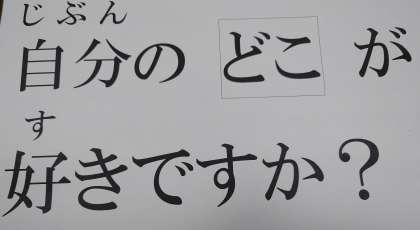 じぶん
自分の どこ が
す
好きですか？